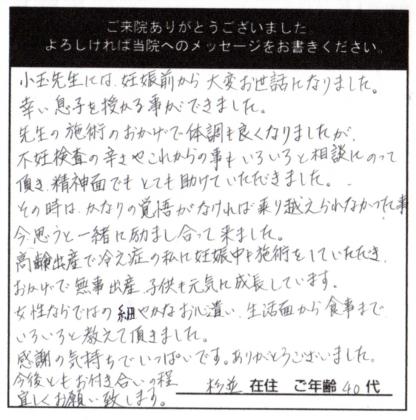 ご来院ありがとうございました
よろしければ当院へのメッセージをお書きください。
小玉先生には、妊娠前から大変お世話になりました。
幸い息子を授かる事ができました。
先生の施術のおかげで体調も良くなりましたが、
不妊検査の辛さやこれからの事もいろいろと相談にのって
頂き、精神面でもとても助けていただきました。
その時は、かなりの覚悟がなければ乗り越えられなかった事
今思うと一緒に励まし合って来ました。
高齢出産で冷え症の私に妊娠中も施術をしていただき、
おかげで無事出産、子供も元気に成長しています。
女性ならではの細やかなお心遣い、生活面から食事まで
いろいろと教えて頂きました。
感謝の気持ちでいっぱいです。ありがとうございました。
今後ともお付き合いの程
宜しくお願い致します。
杉並 在住 ご年齢 40 代